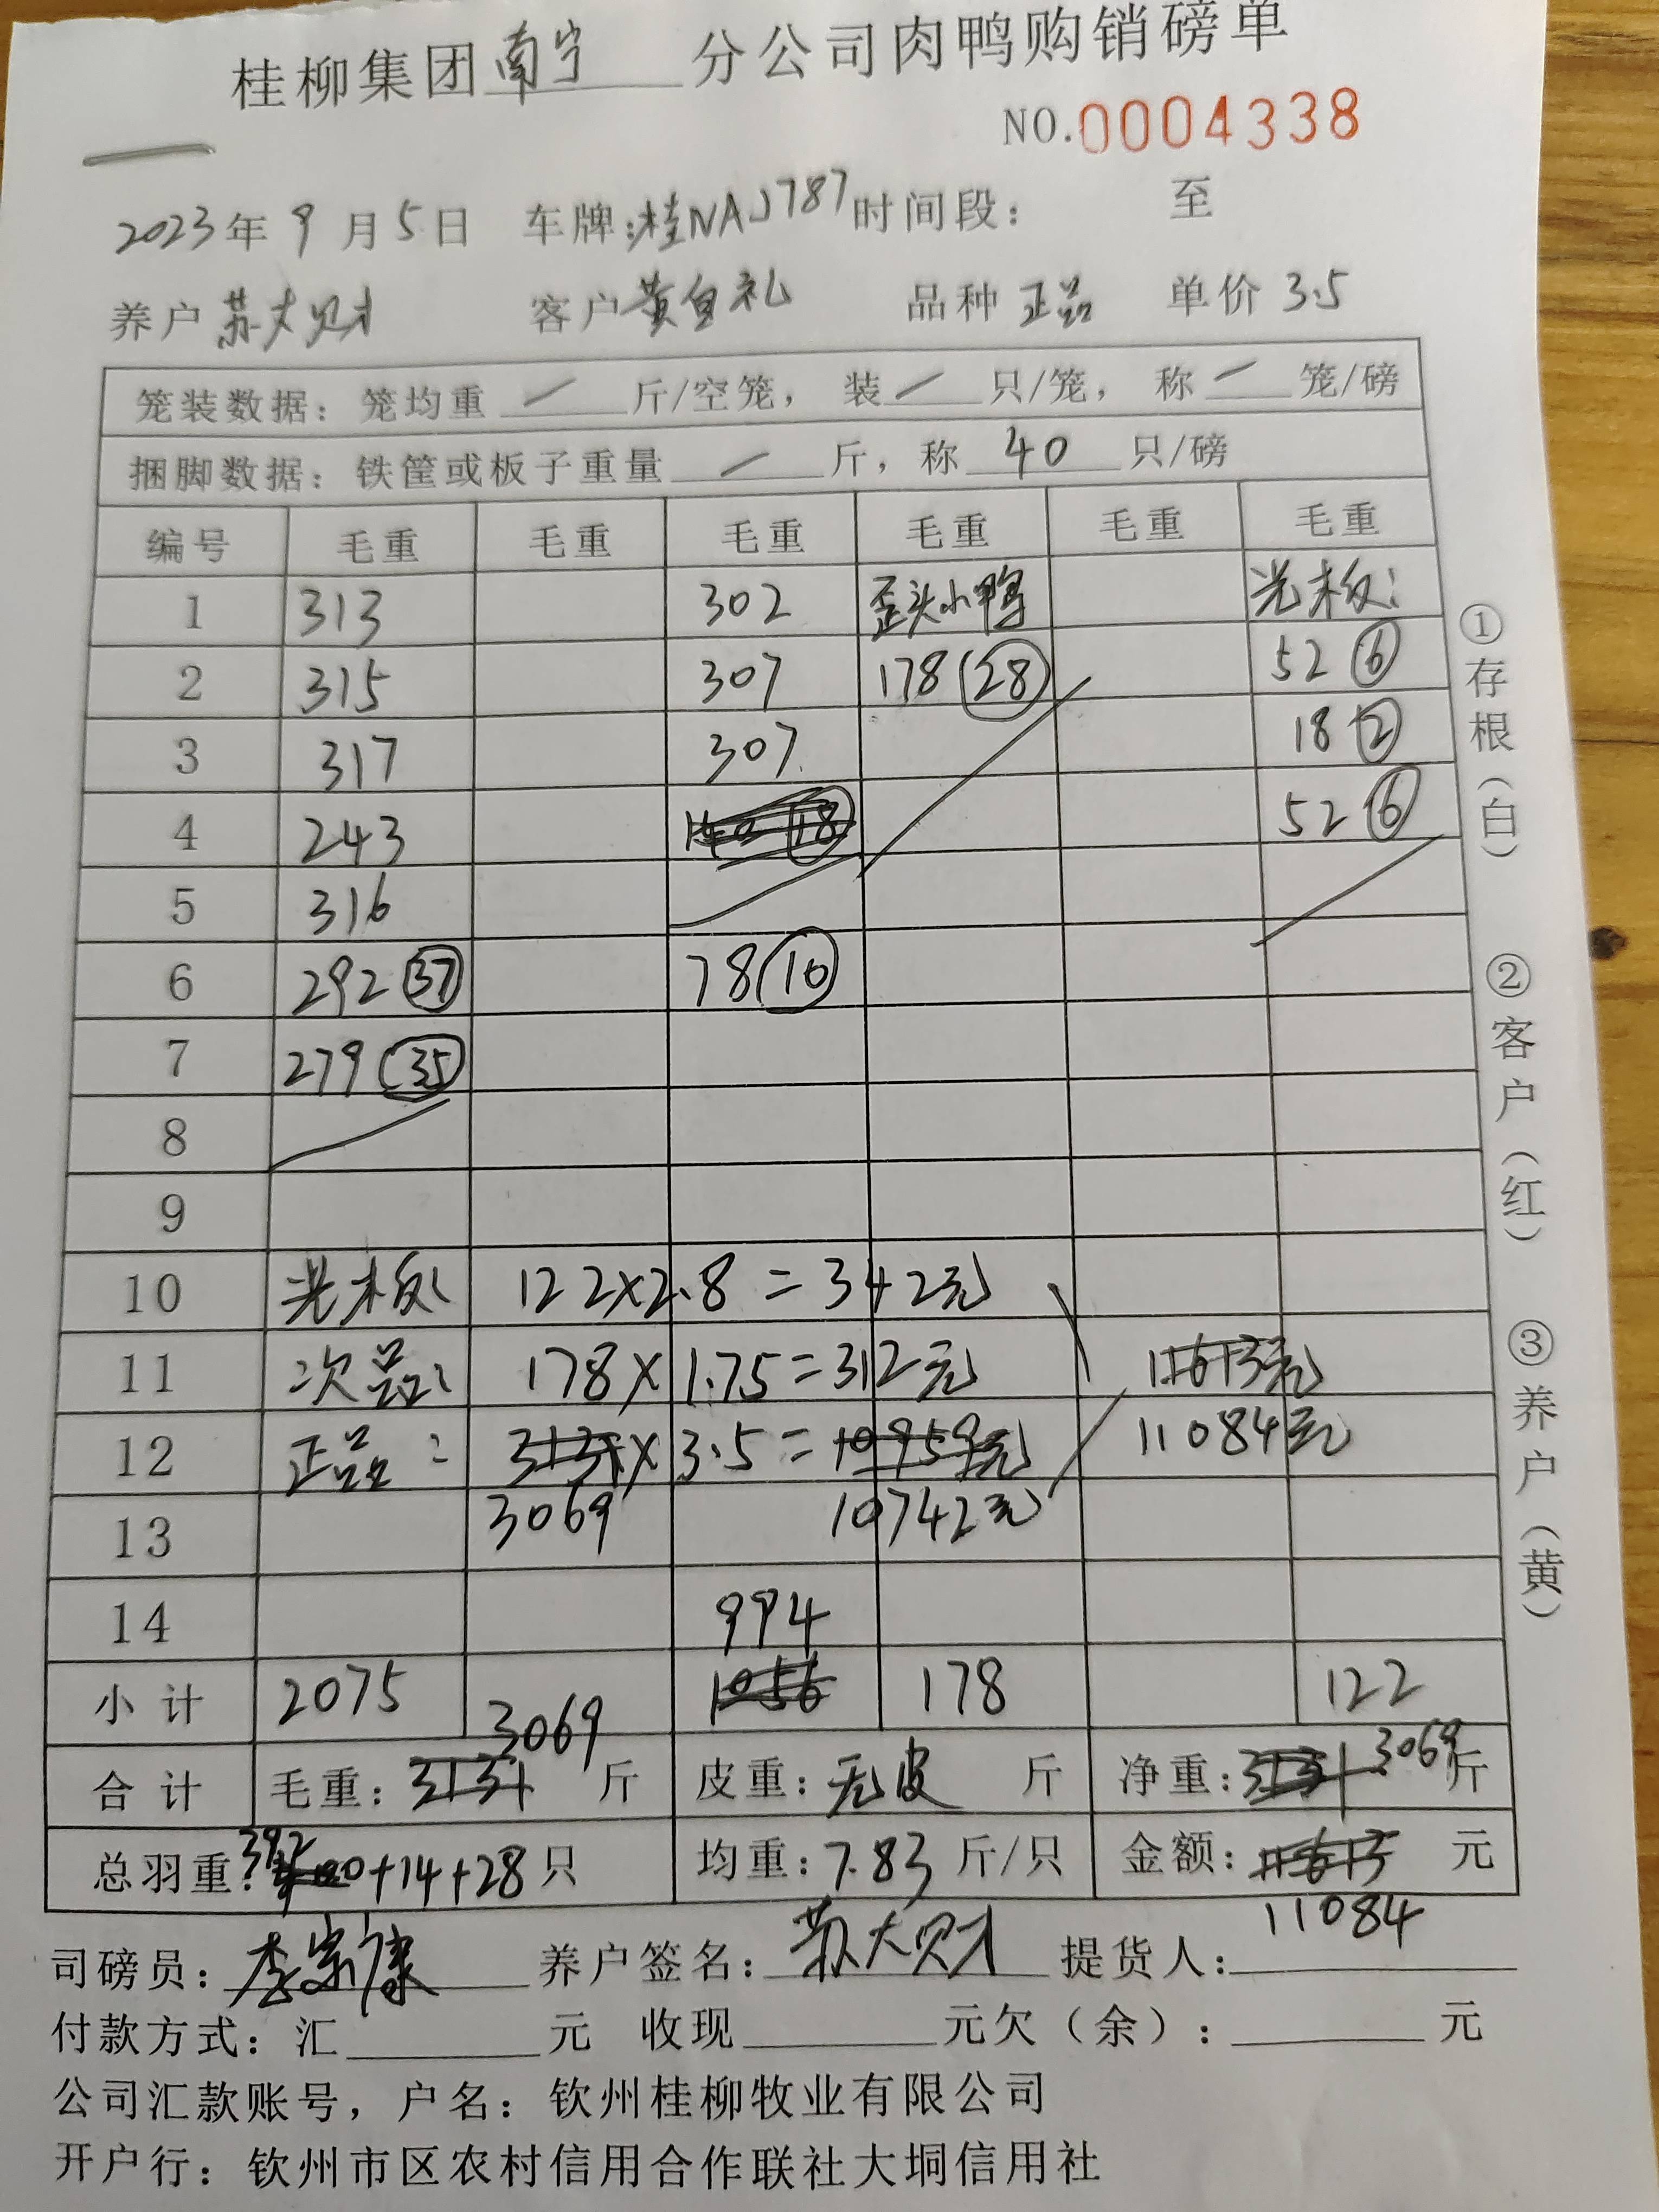 桂柳集团南宁分公司肉鸭购销磅单
NO.0004338
2023年9月5日 车牌:桂NAJ787 时间段: 至
养户 苏大财 客户 黄自礼 品种 正品 单价 3.5
笼装数据: 笼均重 / 斤/空笼, 装 / 只/笼, 称 / 笼/磅
捆脚数据: 铁筐或板子重量 / 斤, 称 40 只/磅
编号 毛重 毛重 毛重 毛重 毛重 毛重
1 313 302 歪头小鸭 光板:
2 315 307 178 28 52 6
3 317 307 18 2
4 243 52 6
5 316
6 292 37 78 10
7 279 35
8
9
10 光板: 122×2.8=342元
11 次品: 178×1.75=312元 11613元
12 正品: 3131×3.5=10959元 11084元
13 3069 10742元
14 994
小计 2075 1056 178 122
3069
合计 毛重: 3131 斤 皮重: 无皮 斤 净重: 3131 3069 斤
总羽重: 392 +14+28只 均重: 7.83 斤/只 金额: 11613 元
11084
司磅员: 李宗康 养户签名: 苏大财 提货人:
付款方式: 汇 元 收现 元欠(余): 元
公司汇款账号, 户名: 钦州桂柳牧业有限公司
开户行: 钦州市区农村信用合作联社大垌信用社
①存根(白)
②客户(红)
③养户(黄)